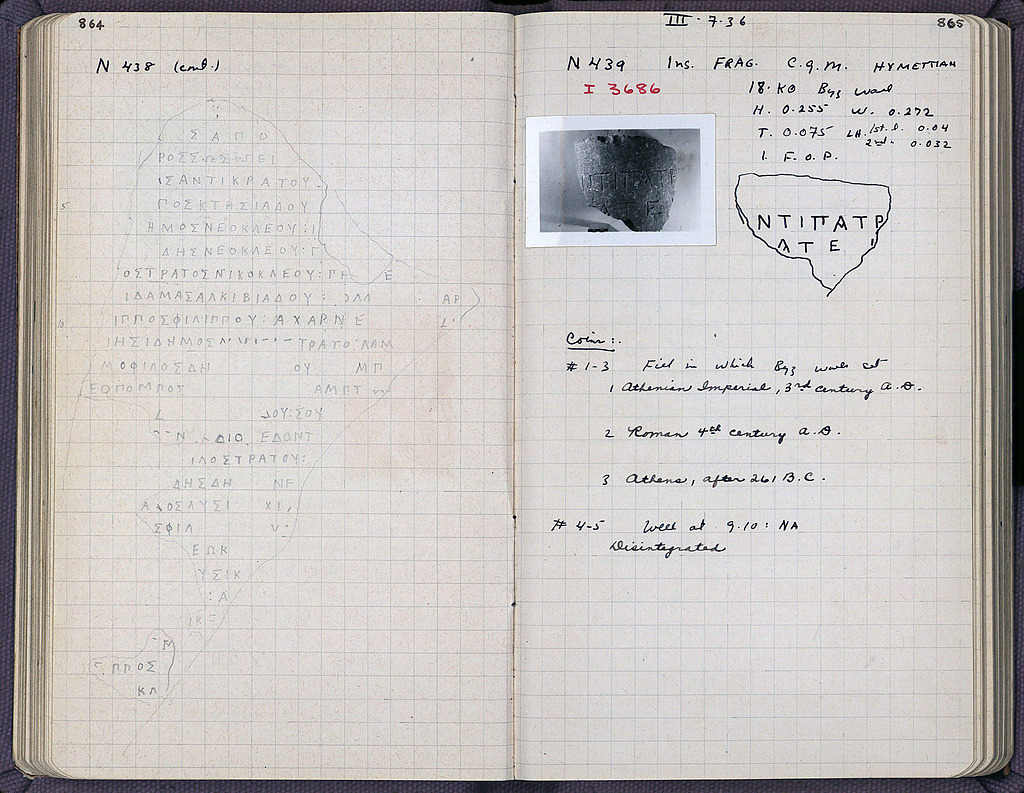 864
N 438 (cont.)
ΣΑΠΟ
ΡΟΣΣΩΣΙΠΕΙ
ΙΣΑΝΤΙΚΡΑΤΟΥ
5 ΠΟΣΚΤΗΣΙΑΔΟΥ
ΗΜΟΣΝΕΟΚΛΕΟΥ:Ι
ΔΗΣΝΕΟΚΛΕΟΥ:Γ
ΟΣΤΡΑΤΟΣΝΙΚΟΚΛΕΟΥ: Ε
ΙΔΑΜΑΣΑΛΚΙΒΙΑΔΟΥ: ΑΡ
10 ΙΠΠΟΣΦΙΛΙΠΠΟΥ:ΑΧΑΡΝΕ
ΙΗΣΙΔΗΜΟΣ ΤΡΑΤΟ ΛΑΜ
ΜΟΦΙΛΟΣΔΗ ΟΥ ΜΠ
ΕΟΠΟΜΠΟΣ ΑΜΠΤ
ΟΥ:ΣΟΥ
Ν ΔΙΟ ΕΔΟΝΤ
ΙΛΟΣΤΡΑΤΟΥ:
ΔΗΣΔΗ ΝΕ
Α ΟΣΛΥΣΙ ΧΙ
ΣΦΙΛ Υ:
ΕΩΚ
ΥΣΙΚ
:Α
ΙΚΞ
Μ
ΠΠΟΣ
ΚΛ
III - 7-36
865
N 439 Ins. FRAG. C.g.M. HYMETTIAN
I 3686
18. KO Byz wall
H. 0.255 W. 0.272
T. 0.075 LH. 1st. l. 0.04
2nd. " 0.032
1. F.O.P.
ΝΤΙΠΑΤΡ
ΑΤΕ
Coins:
#1-3 Fill in which Byz wall set
1 Athenian Imperial, 3rd century A.D.
2 Roman 4th century A.D.
3 Athens, after 261 B.C.
#4-5 Well at 9.10: NA
Disintegrated